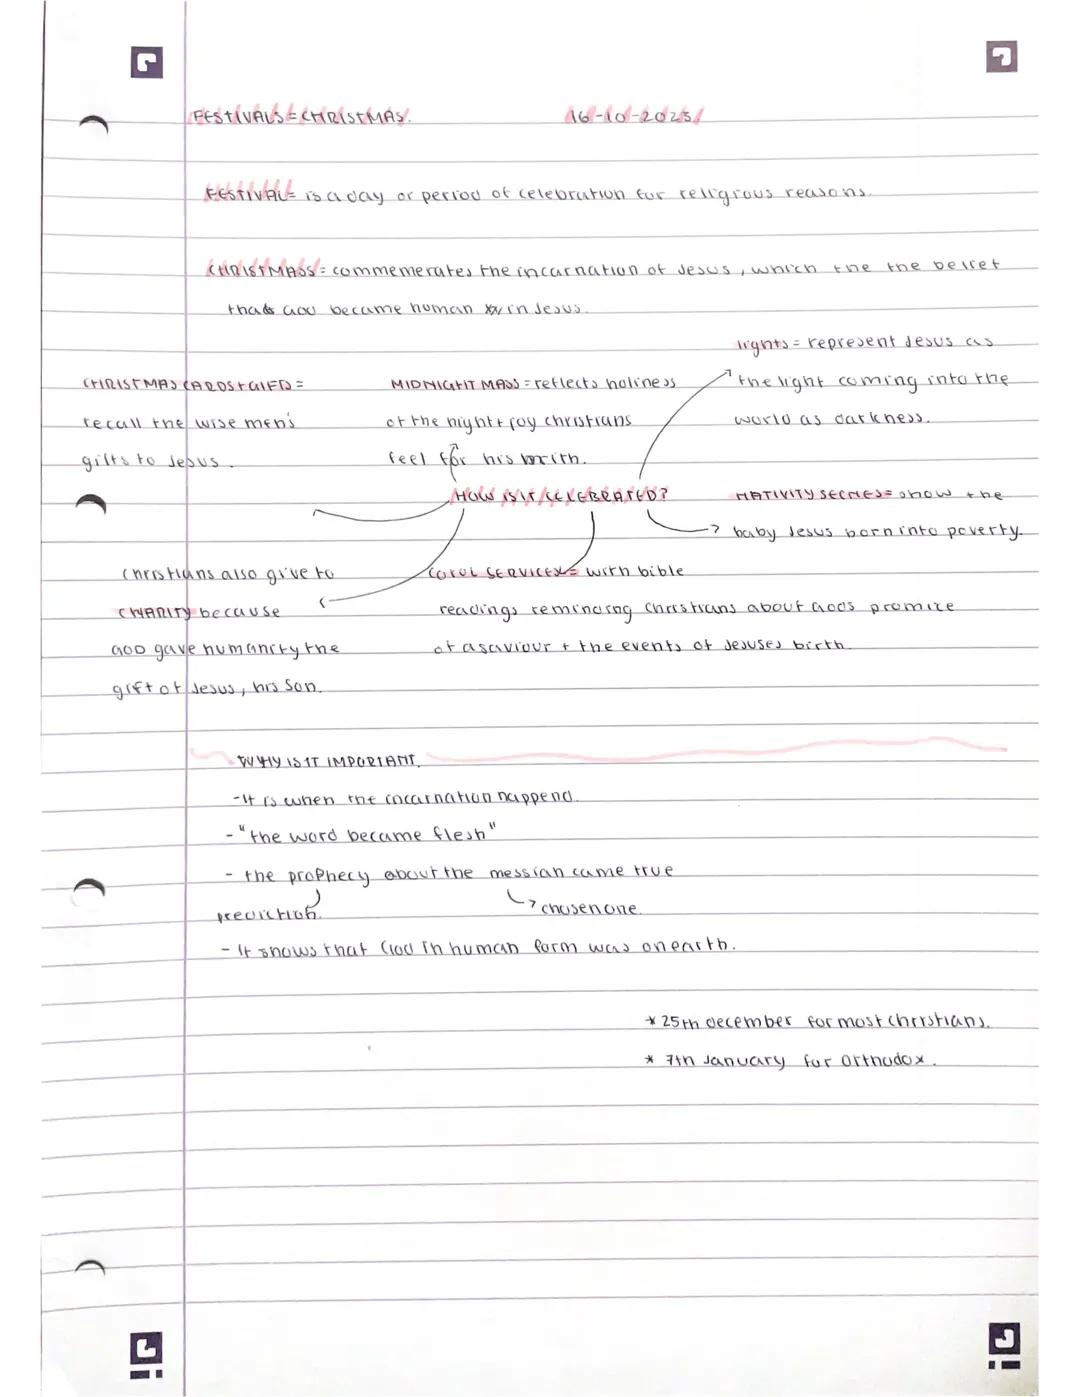 FESTIVALS = CHRISTMAS.
16-10-2025
FESTIVAL = is a day or period of celebration for religious reasons.
CHRISTMASS = commemerates the incarnation of Jesus, which the the belief
that God became human in Jesus.
lights = represent Jesus as
the light coming into the
world as darkness.
CHRISTMAS CARDS + GIFTS =
recall the wise men's
gifts to Jesus.
MIDNIGHT MASS = reflects holiness
of the night + joy christians
feel for his birth.
HOW IS IT CELEBRATED?
NATIVITY SECNES = show the
baby Jesus born into poverty.
Christians also give to
CHARITY because
GOD gave humanity the
gift of Jesus, his Son.
COROL SERVICES = with bible
readings reminding christians about Gods promise
of a saviour + the events of Jesuses birth.
WHY IS IT IMPORTANT.
- It is when the incarnation happend.
- "the word became flesh"
- the prophecy about the messiah came true
prediction.
chosen one.
- It shows that God in human form was on earth.
* 25th december for most christians.
* 7th January for Orthodox.